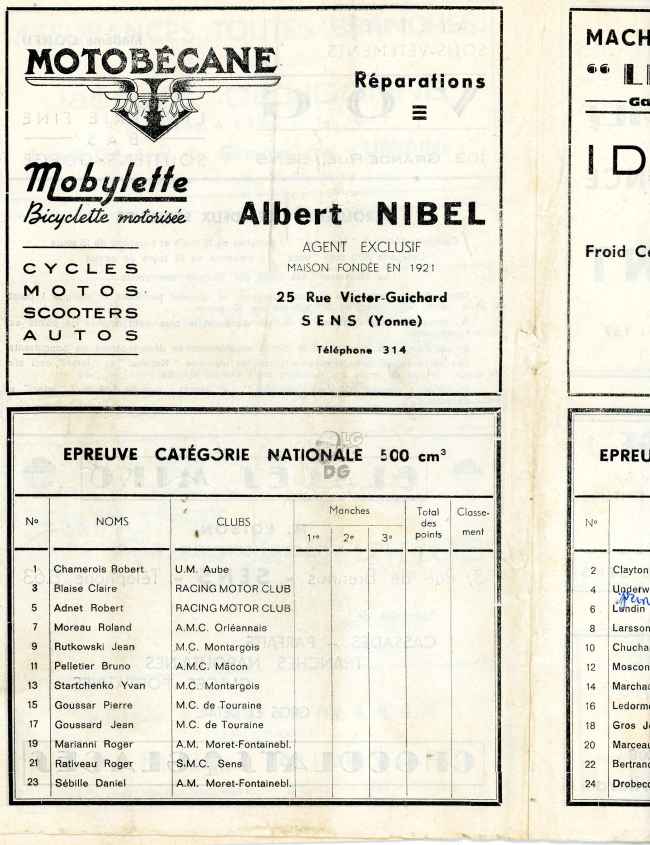 MOTOBÉCANE
Mobylette
Bicyclette motorisée
CYCLES
MOTOS
SCOOTERS
AUTOS
Réparations
Albert NIBEL
AGENT EXCLUSIF
MAISON FONDÉE EN 1921
25 Rue Victor-Guichard
SENS (Yonne)
Téléphone 314
EPREUVE CATÉGORIE NATIONALE 500 cm³
LG
DG
Nº NOMS CLUBS Manches 1re 2e 3e Total des points Classe-ment
1 Chamerois Robert U.M. Aube
3 Blaise Claire RACING MOTOR CLUB
5 Adnet Robert RACING MOTOR CLUB
7 Moreau Roland A.M.C. Orléannais
9 Rutkowski Jean M.C. Montargois
11 Pelletier Bruno A.M.C. Mâcon
13 Startchenko Yvan M.C. Montargois
15 Goussar Pierre M.C. de Touraine
17 Goussard Jean M.C. de Touraine
19 Marianni Roger A.M. Moret-Fontainebl.
21 Rativeau Roger S.M.C. Sens
23 Sébille Daniel A.M. Moret-Fontainebl.
MACH
Froid C
: 137
EPREU
Nº
2 Clayton
4 Underw
6 Landin
8 Larsson
10 Chucha
12 Moscon
14 Marcha
16 Ledorme
18 Gros J
20 Marceau
22 Bertran
24 Drobec